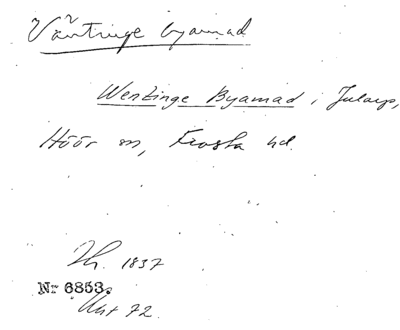 Väntinge byamad
Wentinge Byamad i Jularp,
Höör sn, Frosta hd.
Th. 1837
Nr 6853.
Akt 72.